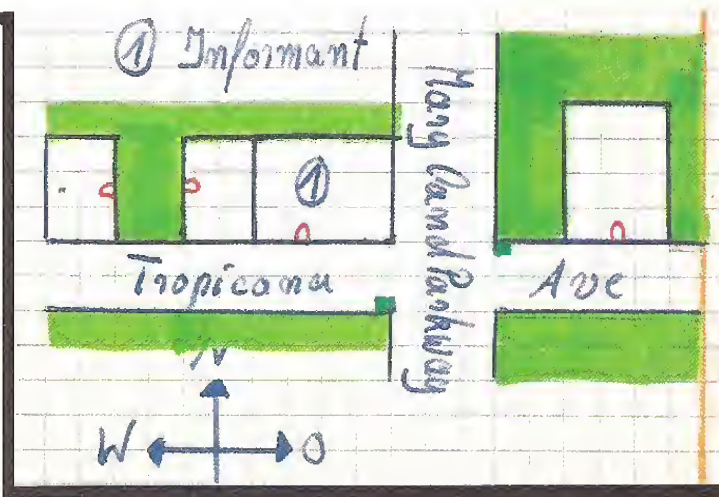 ① Informant
①
Maryland Parkway
Tropicana Ave
N
W O